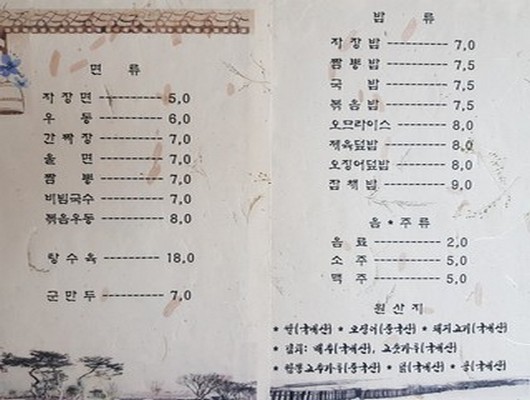 면 류
자 장 면 ---------- 5,0
우 동 ---------- 6,0
간 짜 장 ---------- 7,0
울 면 ---------- 7,0
짬 뽕 ---------- 7,0
비빔국수 ---------- 7,0
볶음우동 ---------- 8,0
탕 수 육 ---------- 18,0
군 만 두 ---------- 7,0
밥 류
자 장 밥 ---------- 7,0
짬 뽕 밥 ---------- 7,5
국 밥 ---------- 7,5
볶 음 밥 ---------- 7,5
오므라이스 ---------- 8,0
제육덮밥 ---------- 8,0
오징어덮밥 ---------- 8,0
잡 채 밥 ---------- 9,0
음 • 주 류
음 료 ---------- 2,0
소 주 ---------- 5,0
맥 주 ---------- 5,0
원 산 지
* 쌀(국내산) * 오징어(중국산) * 돼지고기(국내산)
* 김치: 배추(국내산), 고춧가루(국내산)
* 고춧가루(중국산) * 닭(국내산) * 콩(국내산)